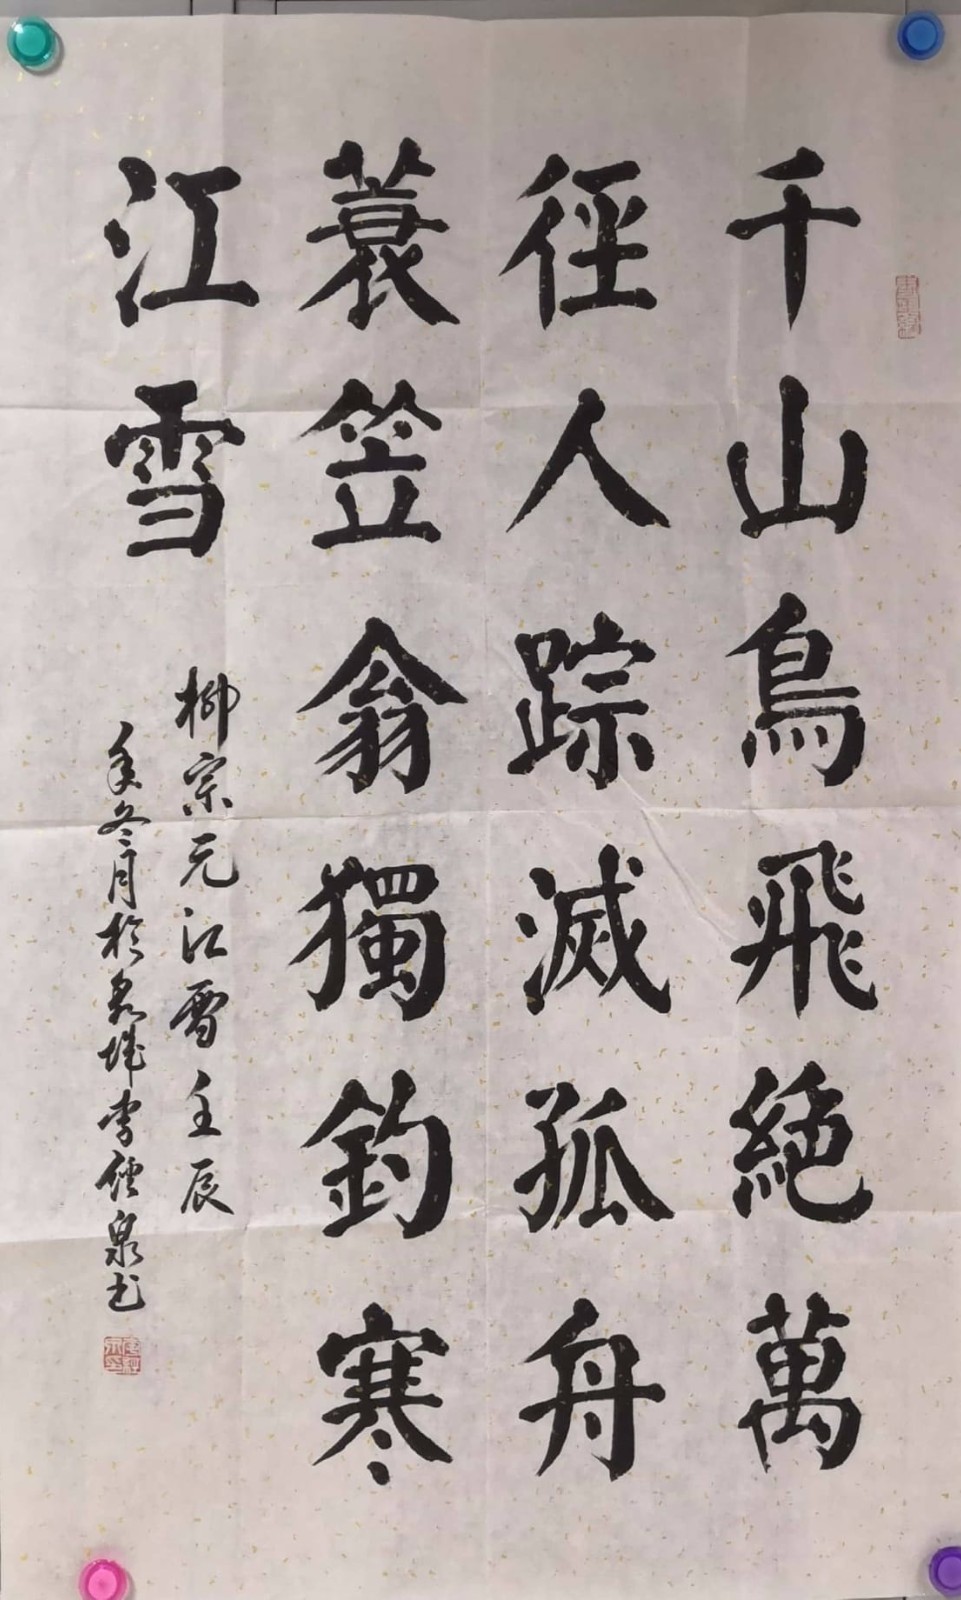 千山鳥飛絶萬
徑人踪滅孤舟
蓑笠翁獨釣寒
江雪
柳宗元江雪壬辰
年冬月於泉城李健泉书